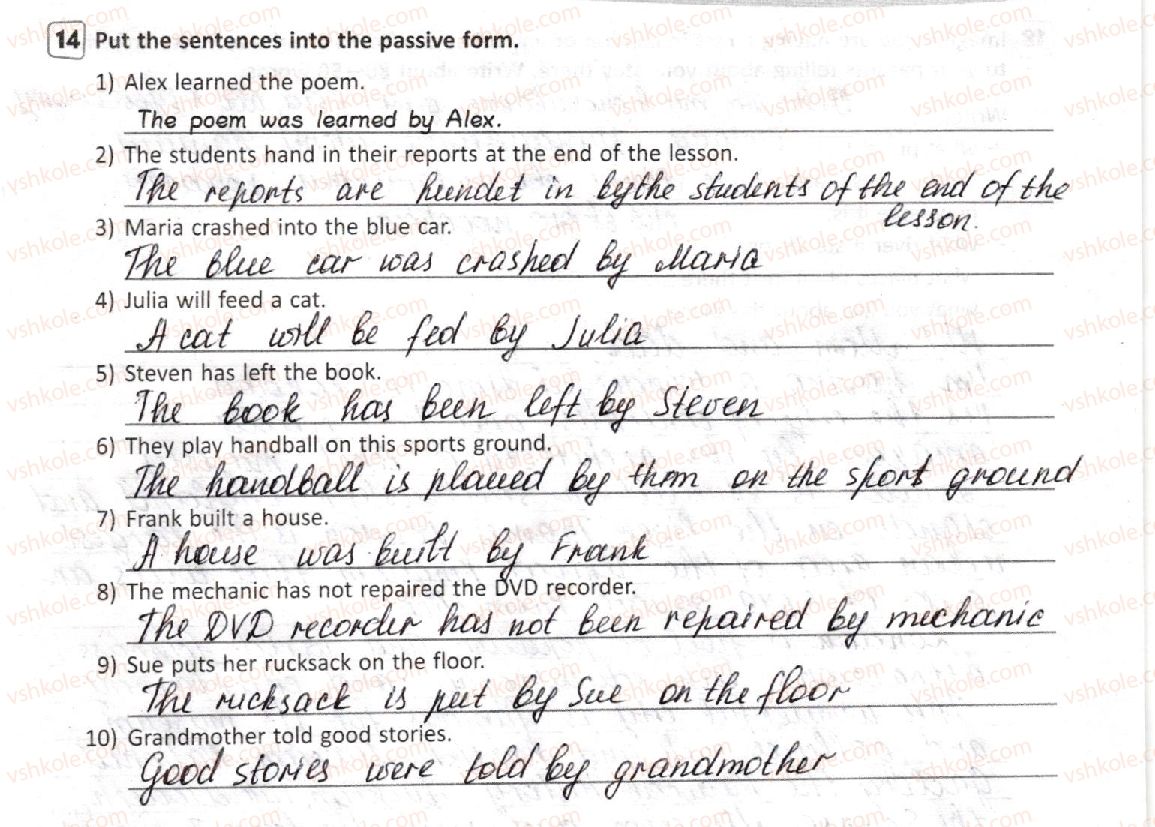 14 Put the sentences into the passive form.
1) Alex learned the poem.
The poem was learned by Alex.
2) The students hand in their reports at the end of the lesson.
The reports are hundet in by the students of the end of the
lesson.
3) Maria crashed into the blue car.
The blue car was crashed by Maria
4) Julia will feed a cat.
A cat will be fed by Julia
5) Steven has left the book.
The book has been left by Steven
6) They play handball on this sports ground.
The handball is placed by them on the sport ground
7) Frank built a house.
A house was built by Frank
8) The mechanic has not repaired the DVD recorder.
The DVD recorder has not been repaired by mechanic
9) Sue puts her rucksack on the floor.
The rucksack is put by Sue on the floor
10) Grandmother told good stories.
Good stories were told by grandmother